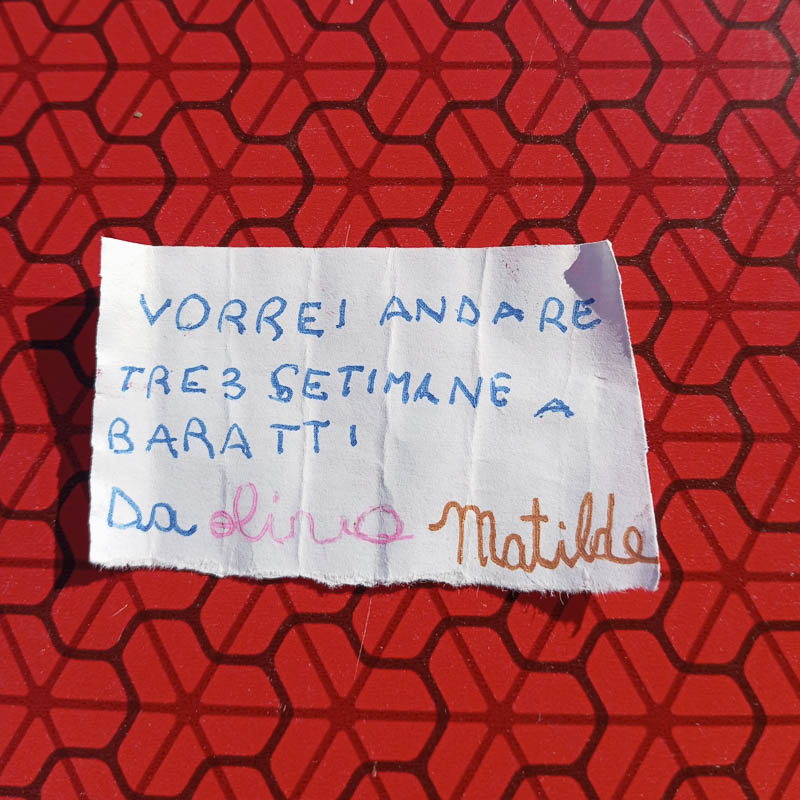 VORREI ANDARE
TRE3 SETIMANE A
BARATTI
Da olivia Matilde